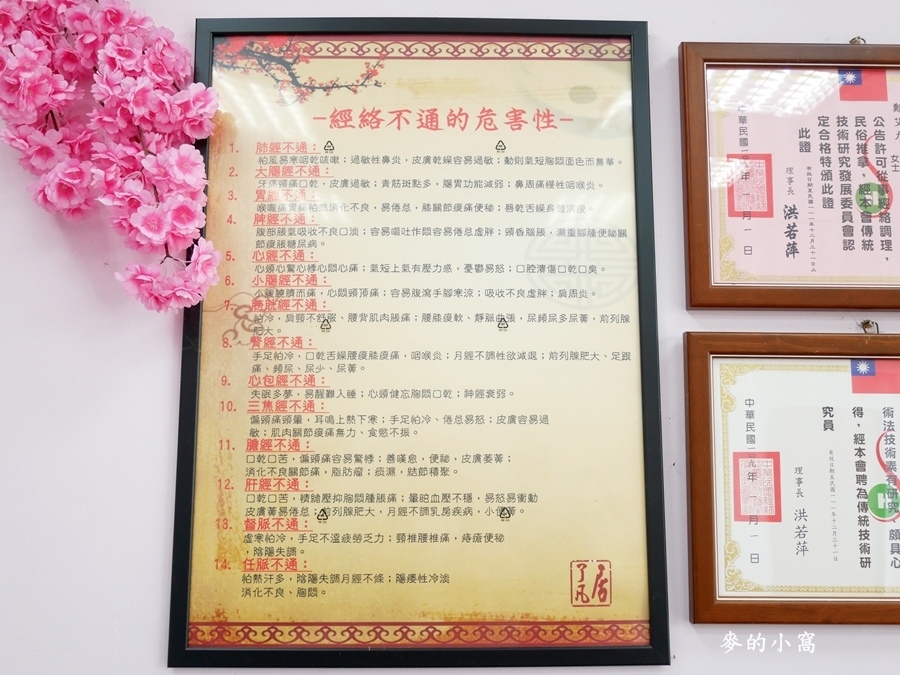 -經絡不通的危害性-
1. 肺經不通：
怕風易寒咽乾咳嗽；過敏性鼻炎，皮膚乾燥容易過敏；動則氣短胸悶面色而無華。
2. 大腸經不通：
牙痛頭痛口乾，皮膚過敏；青筋斑點多，腸胃功能減弱；鼻周痛慢性咽喉炎。
3. 胃經不通：
4. 脾經不通：
腹部脹氣吸收不良口淡；容易嘔吐作悶容易倦怠虛胖；頭昏腦脹，濕重腳腫便秘關
節痠脹糖尿病。
5. 心經不通：
心煩心驚心悸心悶心痛；氣短上氣有壓力感，憂鬱易怒；口腔潰傷口乾口臭。
6. 小腸經不通：
小腹繞臍而痛，心悶頭頂痛；容易腹瀉手腳寒涼；吸收不良虛胖；肩周炎。
7. 膀胱經不通：
怕冷，肩頸不舒服、腰背肌肉脹痛；腰膝痠軟、靜脈曲張，尿頻尿多尿黃，前列腺
肥大。
8. 腎經不通：
手足怕冷，口乾舌燥腰痠膝痠痛，咽喉炎；月經不調性欲減退；前列腺肥大、足跟
痛、頻尿、尿少、尿黃。
9. 心包經不通：
失眠多夢，易醒難入睡；心煩健忘胸悶口乾；神經衰弱。
10. 三焦經不通：
偏頭痛頭暈，耳鳴上熱下寒；手足怕冷、倦怠易怒；皮膚容易過
敏；肌肉關節痠痛無力、食慾不振。
11. 膽經不通：
口乾口苦，偏頭痛容易驚悸；善嘆息，便秘，皮膚萎黃；
消化不良關節痛，脂肪瘤；痰濕，結節積聚。
12. 肝經不通：
口乾口苦，情緒壓抑胸悶腫脹痛；暈眩血壓不穩，易怒易衝動
皮膚黃易倦怠；前列腺肥大，月經不調乳房疾病，小便黃。
13. 督脈不通：
虛寒怕冷，手足不溫疲勞乏力；頸椎腰椎痛，痔瘡便秘
，陰陽失調。
14. 任脈不通：
怕熱汗多，陰陽失調月經不條；陽痿性冷淡
消化不良、胸悶。
了凡居
女士
公告許可從事經絡調理，
民俗推拿，經本會傳統
技術研究發展委員會認
定合格特頒此證
此證
理事長 洪若萍
術法技術素有研究，頗具心
得，經本會聘為傳統技術研
究員
理事長 洪若萍
麥的小窩